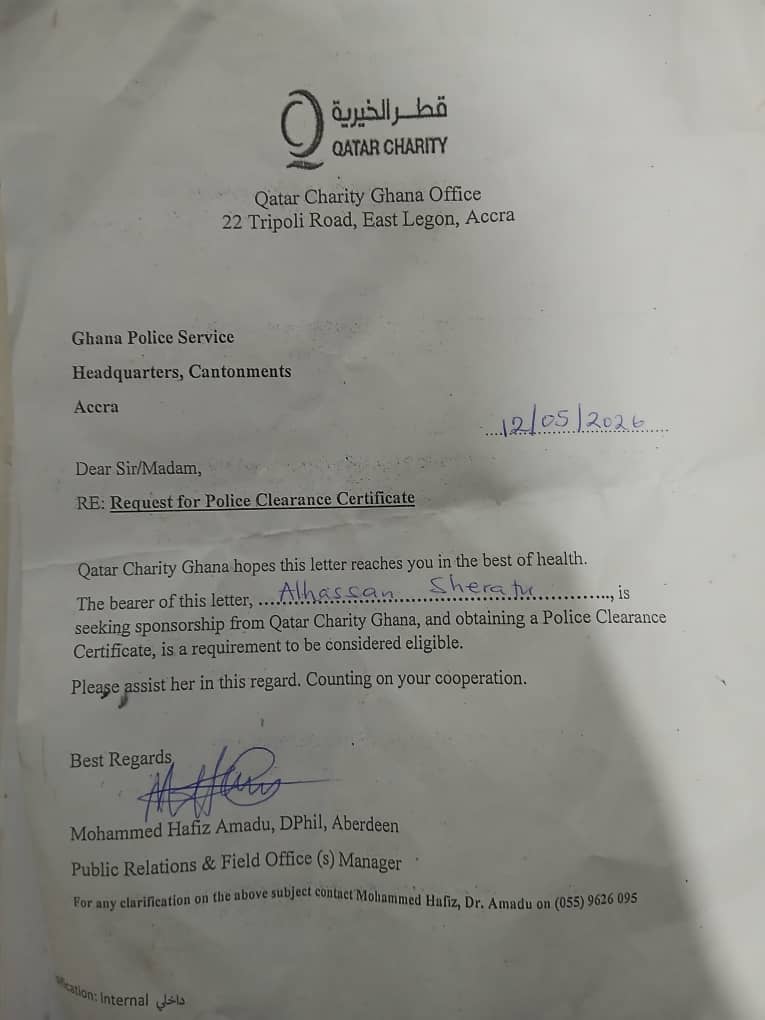 قطر الخيرية
QATAR CHARITY
Qatar Charity Ghana Office
22 Tripoli Road, East Legon, Accra
Ghana Police Service
Headquarters, Cantonments
Accra
12/05/2026
Dear Sir/Madam,
RE: Request for Police Clearance Certificate
Qatar Charity Ghana hopes this letter reaches you in the best of health.
The bearer of this letter, ....Alhassan....Sheratu............., is
seeking sponsorship from Qatar Charity Ghana, and obtaining a Police Clearance
Certificate, is a requirement to be considered eligible.
Please assist her in this regard. Counting on your cooperation.
Best Regards
Mohammed Hafiz Amadu, DPhil, Aberdeen
Public Relations & Field Office (s) Manager
For any clarification on the above subject contact Mohammed Hafiz, Dr. Amadu on (055) 9626 095
Internal داخلي